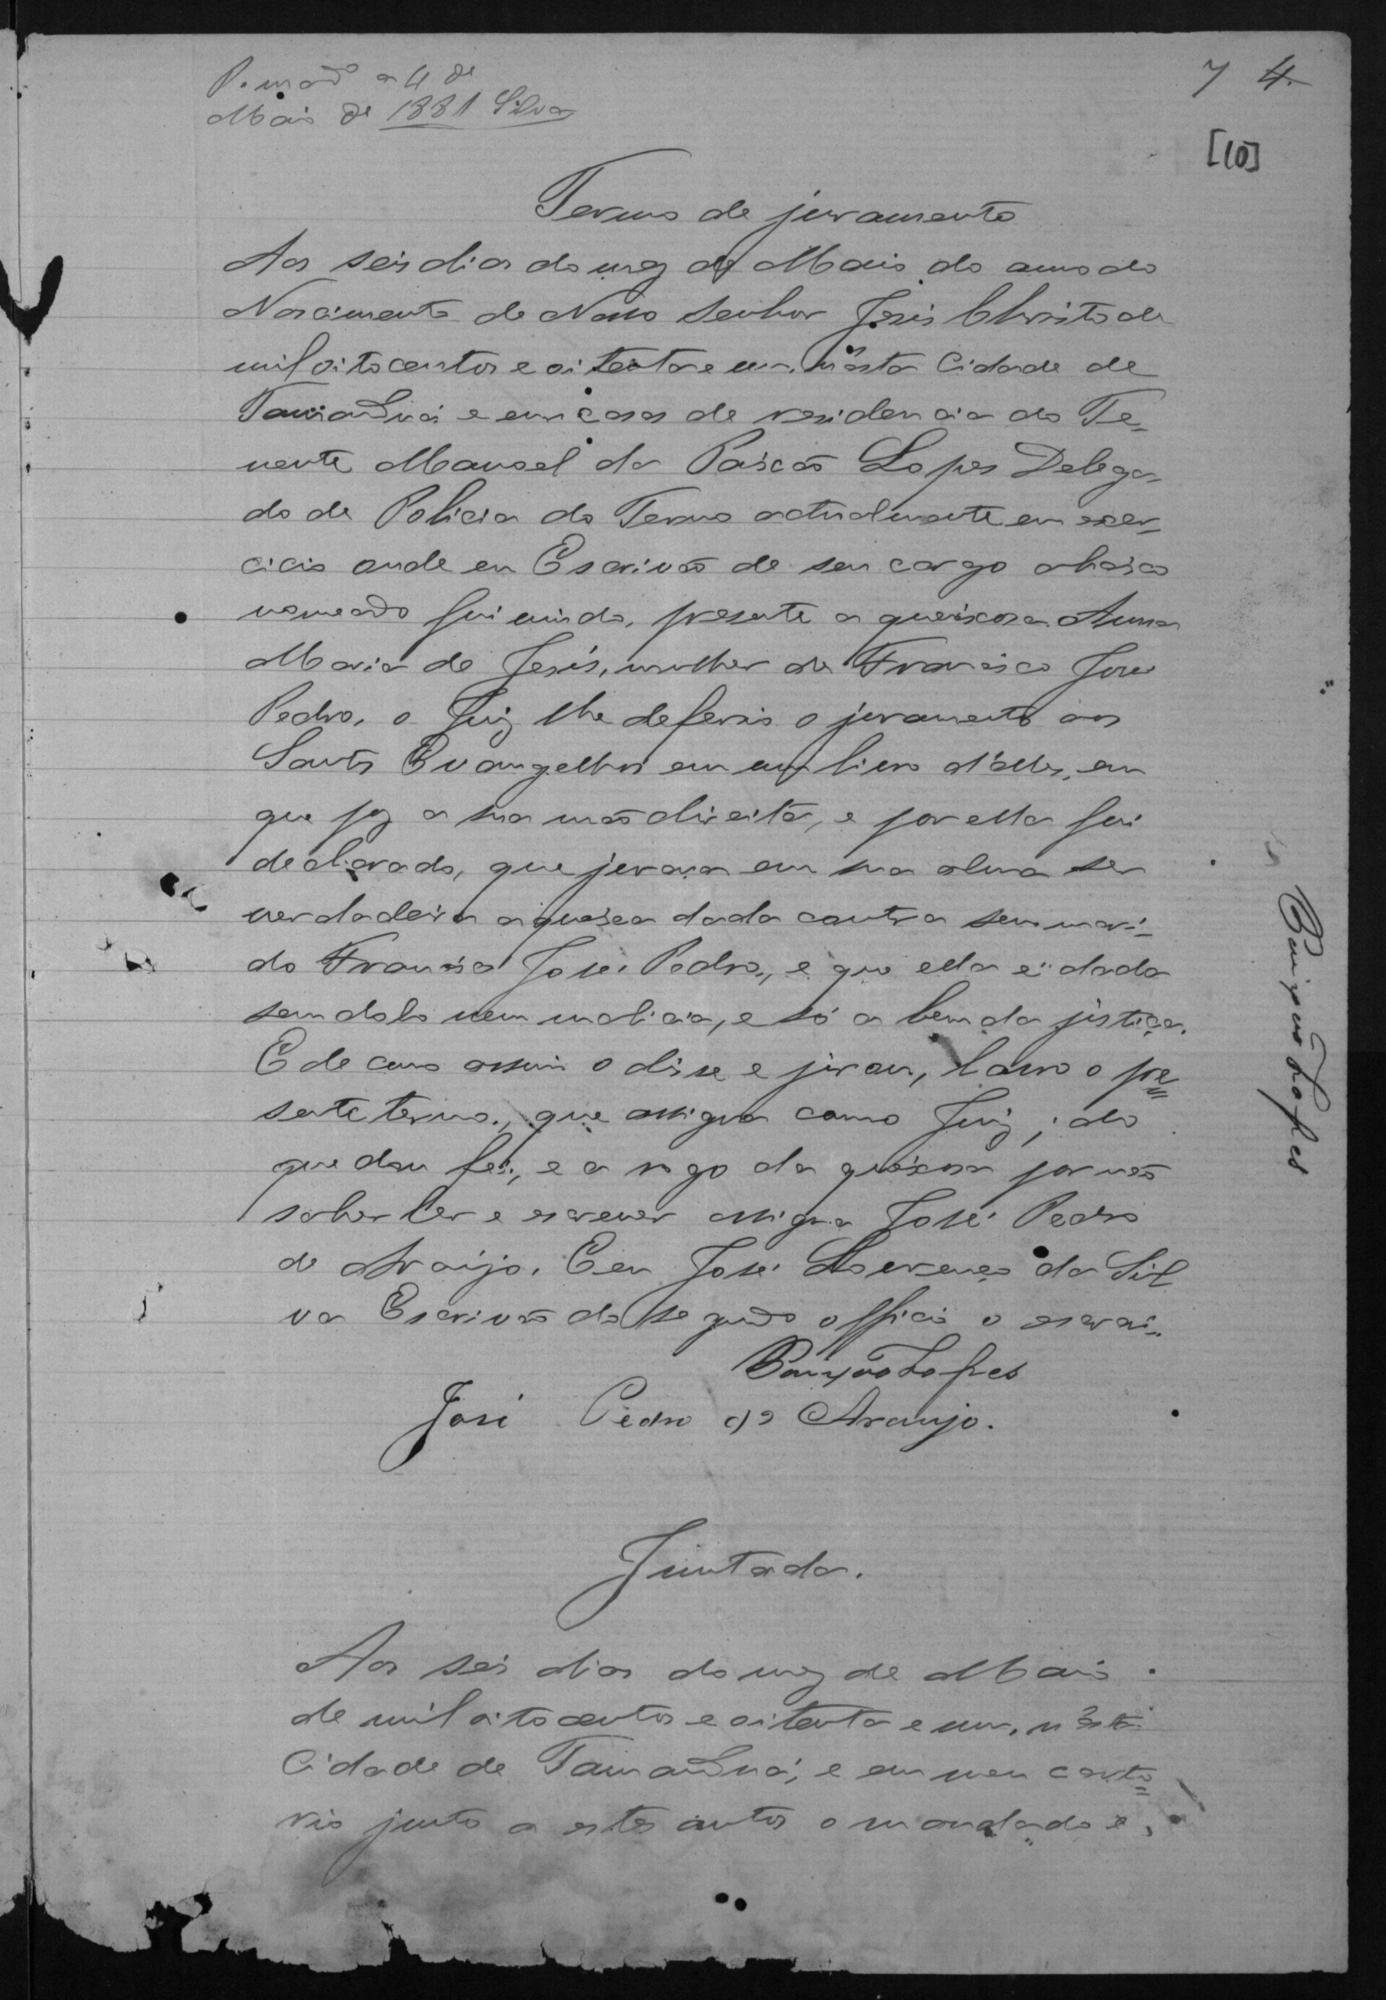 P. mado a 4 de
Maio de 1881 Silva
7 4
[10]
Termo de juramento
Aos seis dias do mez de Maio do anno do
Nascimento de Nosso Senhor Jesus Christo de
mil oitocentos e oitenta e um, nésta Cidade de
e em casa de residencia do Te-
nente Manoel da Paixão Lopes Delega-
do de Policia do Termo actualmente em exer-
cicio onde eu Escrivão de seu cargo abaixo
nomeado fui vindo, presente a queixosa Anna
Maria de Jesús, mulher de Francisco José
Pedro, o Juiz lhe deferio o juramento aos
Santos Evangelhos em um livro d'elles, em
que poz a sua mão direita, e por ella foi
declarado, que jurava em sua alma ser
verdadeira a queixa dada contra seu mari-
do Francisco José Pedro, e que ella é dada
sem dolo nem malicia, e só a bem da justiça.
E de como assim o disse e jurou, lavro o pre=
sente termo, que assigna como Juiz; do
que dou fé, e a rogo da queixosa por não
saber ler e escrever assigna José Pedro
de Araújo. Eu José Lourenço da Sil
va Escrivão do segundo officio o escrevi..
Paixão Lopes
José Pedro de Araujo.
Paixão Lopes
Juntada.
Aos seis dias do mez de Maio
de mil oitocentos e oitenta e um, nésta
Cidade de e em meu carto=
rio junto a estes autos o mandado e